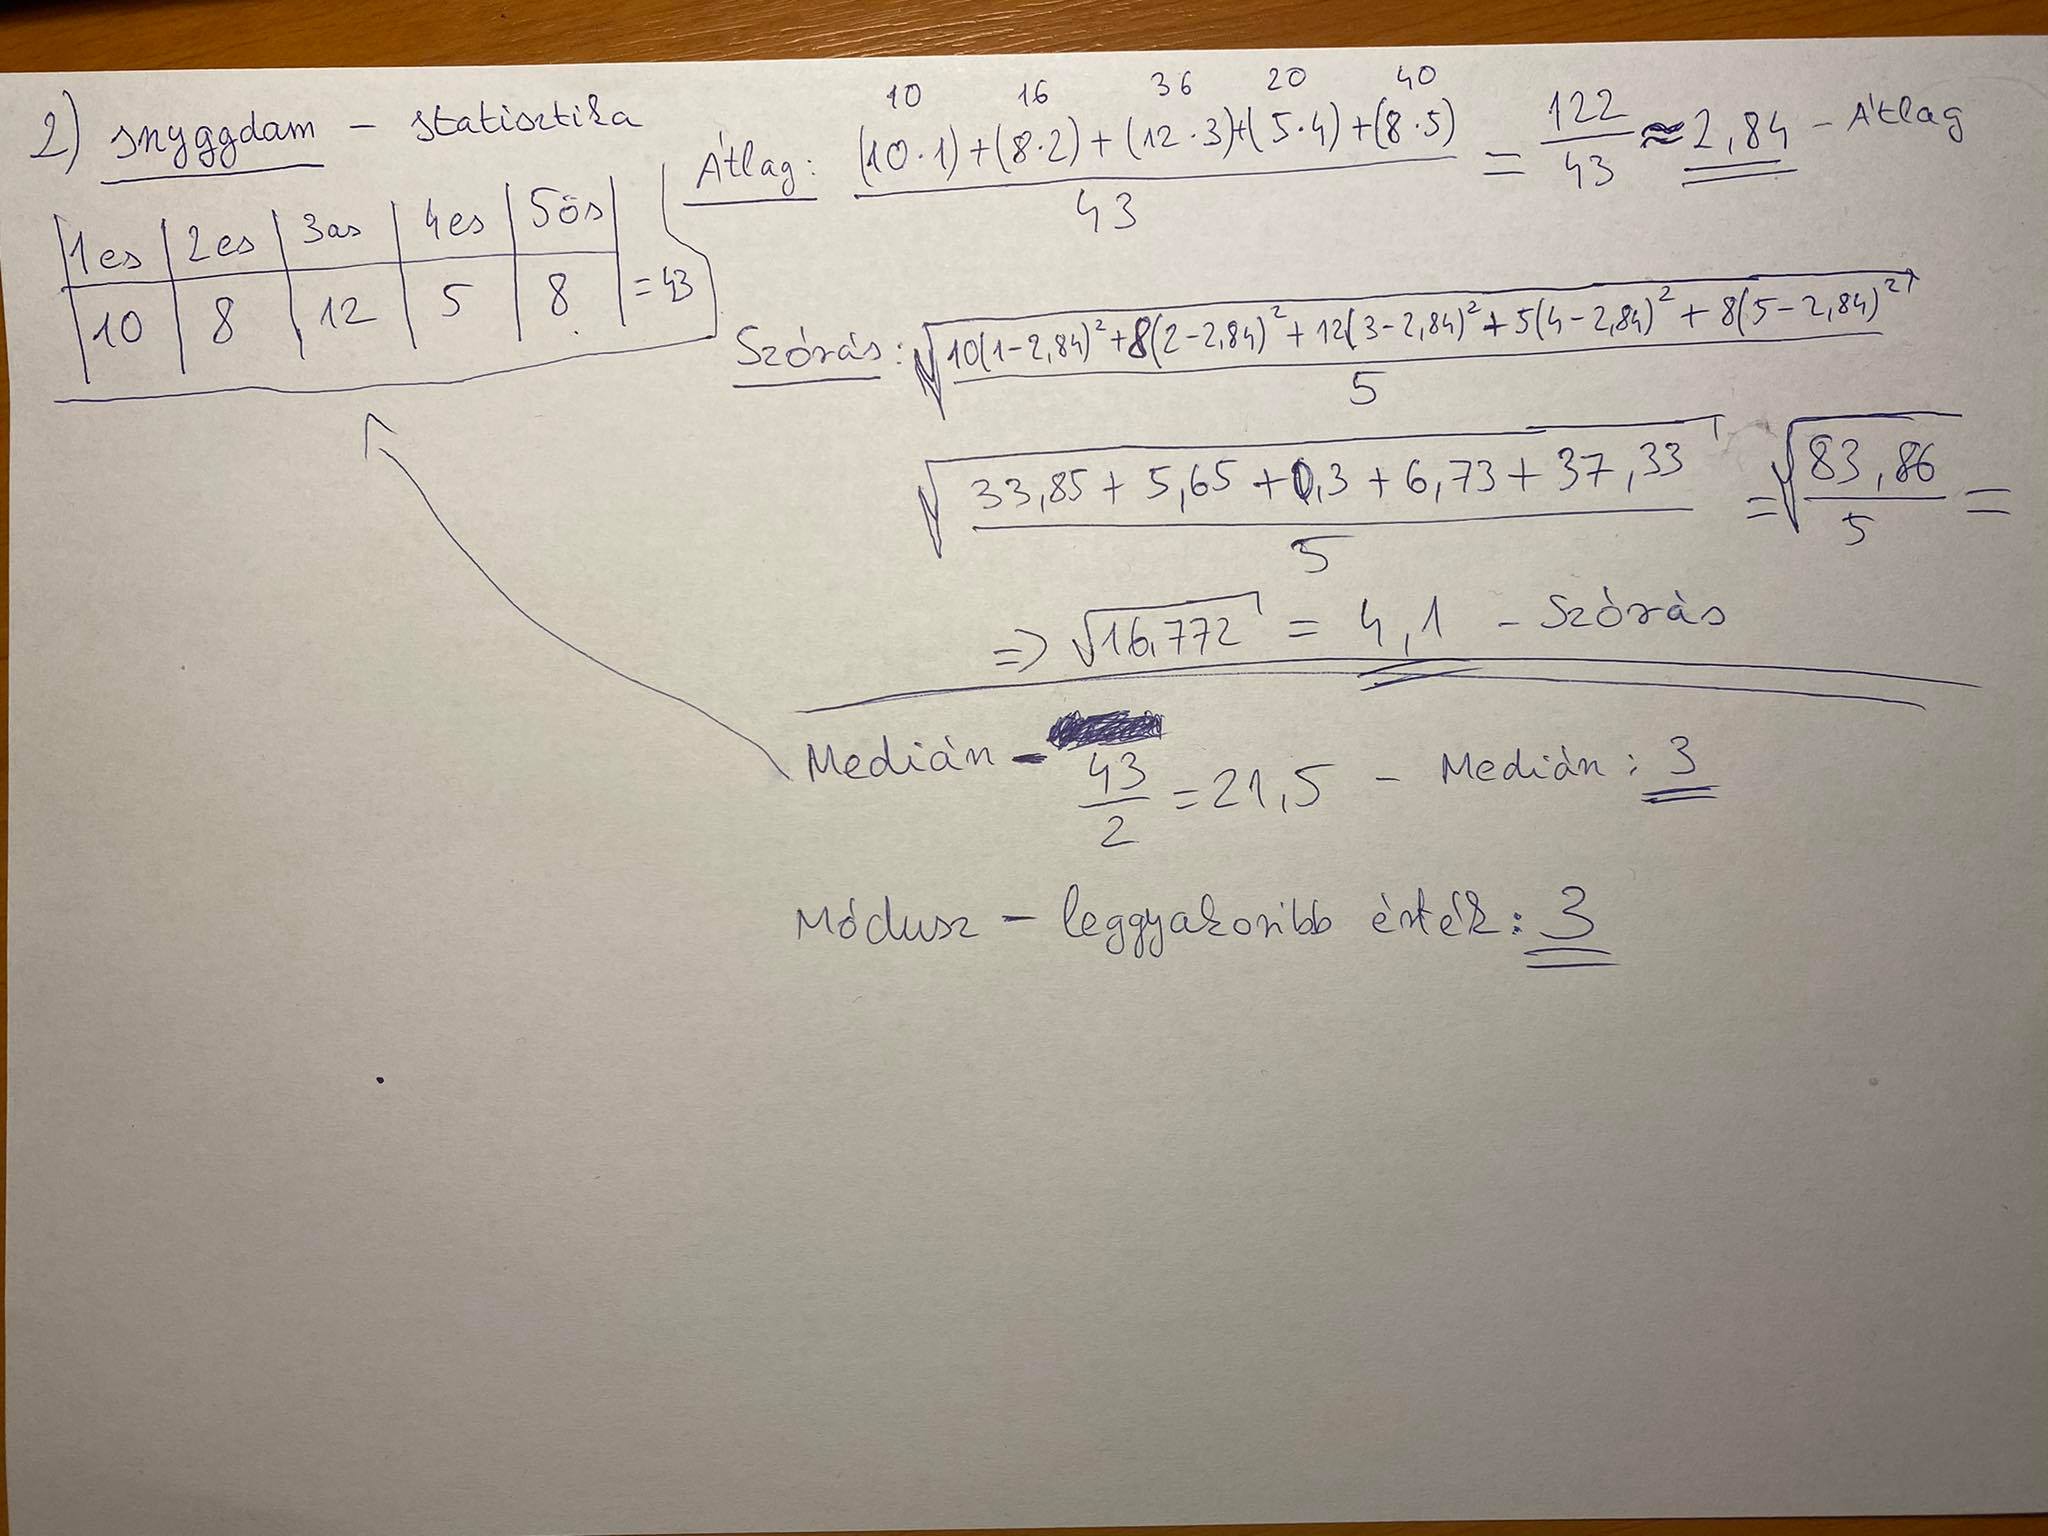 2) snyggdam – statisztika
1es | 2es | 3as | 4es | 5ös
10 | 8 | 12 | 5 | 8 = 43
10 16 36 20 40
Átlag: (10·1)+(8·2)+(12·3)+(5·4)+(8·5) / 43 = 122/43 ≈ 2,84 – Átlag
Szórás: √(10(1-2,84)²+8(2-2,84)²+12(3-2,84)²+5(4-2,84)²+8(5-2,84)² / 5)
√(33,85+5,65+0,3+6,73+37,33 / 5) = √(83,86 / 5) =
=> √16,772 = 4,1 – Szórás
Medián – 43/2 = 21,5 – Medián: 3
Módusz – leggyakoribb érték: 3